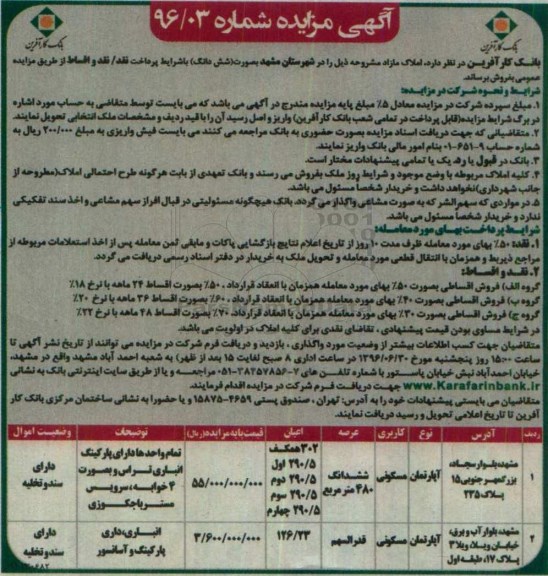 آگهی مزایده شماره ۹۶/۰۳
بانک کارآفرین
بانک کارآفرین
بانک کارآفرین در نظر دارد، املاک مازاد مشروحه ذیل را در شهرستان مشهد بصورت(شش دانگ) باشرایط پرداخت نقد/ نقد و اقساط از طریق مزایده
عمومی بفروش برساند.
شرایط و نحوه شرکت در مزایده:
۱. مبلغ سپرده شرکت در مزایده معادل ۵٪ مبلغ پایه مزایده مندرج در آگهی می باشد که می بایست توسط متقاضی به حساب مورد اشاره
در برگ شرایط مزایده(قابل پرداخت در تمامی شعب بانک کارآفرین) واریز و اصل رسید آن را با قید ردیف و مشخصات ملک انتخابی تحویل نمایند.
۲. متقاضیانی که جهت دریافت اسناد مزایده بصورت حضوری به بانک مراجعه می کنند می بایست فیش واریزی به مبلغ ۲۰۰/۰۰۰ ریال به
شماره حساب ۹-۶۵۱-۰۱ بنام امور مالی بانک واریز نمایند.
۳. بانک در قبول یا رد، یک یا تمامی پیشنهادات مختار است.
۴. کلیه املاک مربوطه با وضع موجود و شرایط روز ملک بفروش می رسند و بانک تعهدی از بابت هرگونه طرح احتمالی املاک(مطروحه از
جانب شهرداری)نخواهد داشت و خریدار شخصاً مسئول می باشد.
۵. در مواردی که سهم الشر که به صورت مشاعی واگذار می گردد، بانک هیچگونه مسئولیتی در قبال افراز سهم مشاعی و اخذ سند تفکیکی
ندارد و خریدار شخصاً مسئول می باشد.
شرایط پرداخت بهای مورد معامله:
۱. نقد: ۵۰٪ بهای مورد معامله ظرف مدت ۱۰ روز از تاریخ اعلام نتایج بازگشایی پاکات و مابقی ثمن معامله پس از اخذ استعلامات مربوطه از
مراجع ذیربط و همزمان با انتقال قطعی مورد معامله و تحویل ملک به خریدار در دفتر اسناد رسمی دریافت می گردد.
۲. نقد و اقساط:
گروه الف) فروش اقساطی بصورت ۵۰٪ بهای مورد معامله همزمان با انعقاد قرارداد ، ۵۰٪ بصورت اقساط ۲۴ ماهه با نرخ ۱۸٪
گروه ب) فروش اقساطی بصورت ۴۰٪ بهای مورد معامله همزمان با انعقاد قرارداد ، ۶۰٪ بصورت اقساط ۳۶ ماهه با نرخ ۲۰٪
گروه ج) فروش اقساطی بصورت ۳۰٪ بهای مورد معامله همزمان با انعقاد قرارداد، ۷۰٪ بصورت اقساط ۴۸ ماهه با نرخ ۲۲٪
در شرایط مساوی بودن قیمت پیشنهادی ، تقاضای نقدی برای کلیه املاک در اولویت می باشد.
متقاضیان جهت کسب اطلاعات بیشتر از وضعیت مورد واگذاری ، بازدید و دریافت فرم شرکت در مزایده می توانند از تاریخ نشر آگهی تا
۱۵:۰۰ روز پنجشنبه مورخ ۱۳۹۶/۰۶/۳۰ در ساعت اداری ۸ صبح لغایت ۱۵ بعد از ظهر) به شعبه احمد آباد مشهد واقع در مشهد،
خیابان احمدآباد نبش خیابان پاستور با شماره تلفن های ۷-۳۸۴۵۷۸۵۶-۰۵۱ مراجعه و یا از طریق سایت اینترنتی بانک به نشانی
www.Karafarinbank.ir جهت دریافت فرم شرکت در مزایده اقدام فرمایند.
متقاضیان می بایستی پیشنهادات خود را به آدرس: تهران ، صندوق پستی ۴۶۵۹-۱۵۸۷۵ و یا حضورا به نشانی ساختمان مرکزی بانک کار
آفرین تا تاریخ اعلامی تحویل و رسید دریافت نمایند.
ردیف آدرس نوع کاربری عرصه اعیان قیمت پایه مزایده(ریال) توضیحات وضعیت اموال
۱ مشهد، بلوار سجاد، بزرگمهر جنوبی ۱۵ پلاک ۲۳۵ آپارتمان مسکونی ششدانگ ۴۸۰ متر مربع ۳۰۲ همکف ۲۹۰/۵ اول ۲۹۰/۵ دوم ۲۹۰/۵ سوم ۲۹۰/۵ چهارم ۵۵/۰۰۰/۰۰۰/۰۰۰ تمام واحدها دارای پارکینگ انباری تراس و بصورت ۴ خوابه، سرویس مستر با جکوزی دارای سند و تخلیه
۲ مشهد، بلوار آب و برق، خیابان ویلا، ویلا ۳ پلاک ۱۷، طبقه اول آپارتمان مسکونی قدرالسهم ۱۲۶/۲۳ ۳/۶۰۰/۰۰۰/۰۰۰ انباری، داری پارکینگ و آسانسور دارای سند و تخلیه